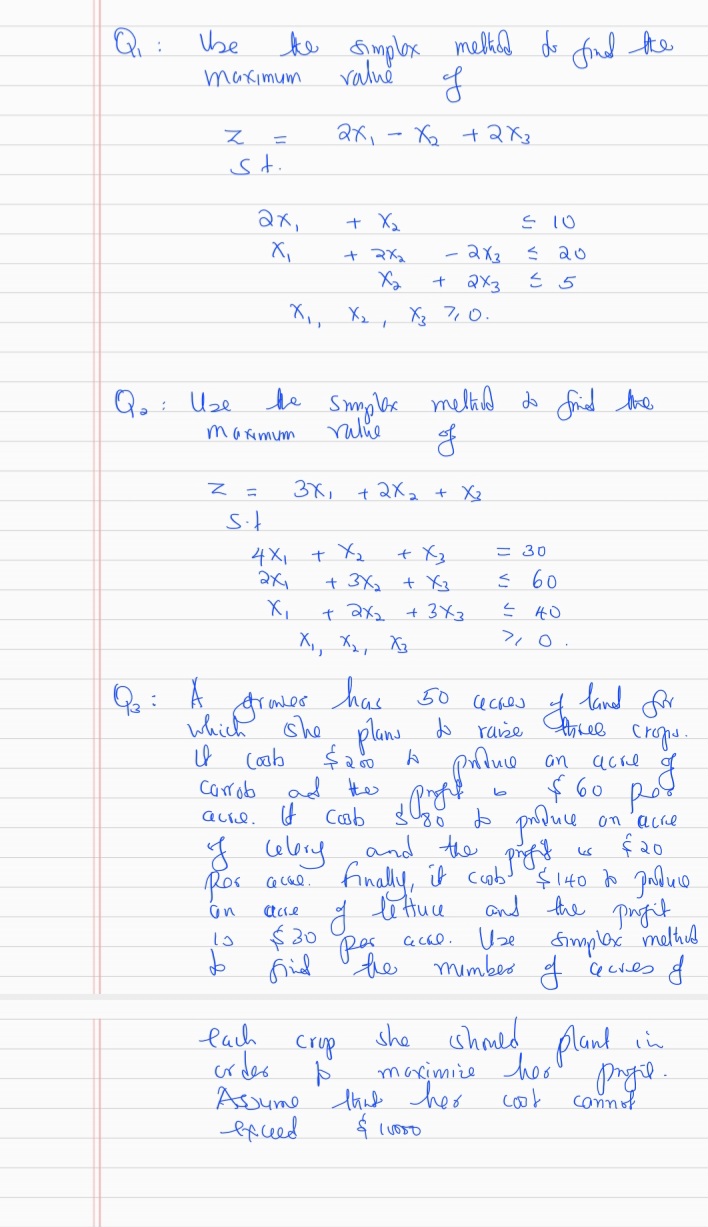 Q1 : Use the simplex method to find the
maximum value of
Z = 2x₁ - x₂ + 2x₃
s t.
2x₁ + x₂ ≤ 10
x₁ + 2x₂ - 2x₃ ≤ 20
x₂ + 2x₃ ≤ 5
x₁, x₂, x₃ ≥ 0.
Q2 : Use the simplex method to find the
maximum value of
Z = 3x₁ + 2x₂ + x₃
s.t
4x₁ + x₂ + x₃ = 30
2x₁ + 3x₂ + x₃ ≤ 60
x₁ + 2x₂ + 3x₃ ≤ 40
x₁, x₂, x₃ ≥ 0.
Q3 : A grower has 50 acres of land for
which she plans to raise three crops.
It costs $200 to produce an acre of
carrots and the profit is $60 per
acre. It costs $80 to produce an acre
of celery and the profit is $20
per acre. Finally, it costs $140 to produce
an acre of lettuce and the profit
is $30 per acre. Use simplex method
to find the number of acres of
each crop she should plant in
order to maximize her profit.
Assume that her cost cannot
exceed $